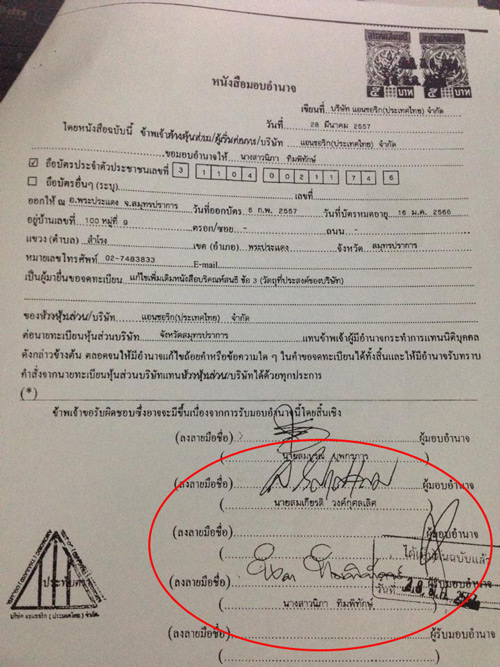 ๕ บาท ๕ บาท
หนังสือมอบอำนาจ
เขียนที่ บริษัท แอนซอริก(ประเทศไทย) จำกัด
วันที่ 28 มีนาคม 2557
โดยหนังสือฉบับนี้ ข้าพเจ้าห้างหุ้นส่วน/ผู้เริ่มก่อการ/บริษัท แอนซอริก(ประเทศไทย) จำกัด
ขอมอบอำนาจให้ นางสาวนิภา ทิมพิทักษ์
ถือบัตรประจำตัวประชาชนเลขที่ 3 1104 00211 74 6
ถือบัตรอื่นๆ (ระบุ) เลขที่
ออกให้ ณ อ.พระประแดง จ.สมุทรปราการ วันที่ออกบัตร 6 ก.พ. 2557 วันที่บัตรหมดอายุ 16 ม.ค. 2566
อยู่บ้านเลขที่ 100 หมู่ที่ 9 ตรอก/ซอย - ถนน -
แขวง (ตำบล) สำโรง เขต (อำเภอ) พระประแดง จังหวัด สมุทรปราการ
หมายเลขโทรศัพท์ 02-7483833 E-mail
เป็นผู้มายื่นขอจดทะเบียน แก้ไขเพิ่มเติมหนังสือบริคณห์สนธิ ข้อ 3 (วัตถุที่ประสงค์ของบริษัท)
ของห้างหุ้นส่วน/บริษัท แอนซอริก(ประเทศไทย) จำกัด
ต่อนายทะเบียนหุ้นส่วนบริษัท จังหวัดสมุทรปราการ แทนข้าพเจ้าผู้มีอำนาจกระทำการแทนนิติบุคคล
ดังกล่าวข้างต้น ตลอดจนให้มีอำนาจแก้ไขถ้อยคำหรือข้อความใด ๆ ในคำขอจดทะเบียนได้ทั้งสิ้นและให้มีอำนาจรับทราบ
คำสั่งจากนายทะเบียนหุ้นส่วนบริษัทแทนห้างหุ้นส่วน/บริษัทได้ด้วยทุกประการ
(*)
ข้าพเจ้าขอรับผิดชอบซึ่งอาจจะมีขึ้นเนื่องจากการรับมอบอำนาจนี้โดยสิ้นเชิง
(ลงลายมือชื่อ) ผู้มอบอำนาจ
(นายสมบูรณ์)
(ลงลายมือชื่อ) ผู้มอบอำนาจ
(นายสมเกียรติ วงค์กุศลเลิศ)
(ลงลายมือชื่อ) ผู้มอบอำนาจ
( )
ได้ ต้นฉบับแล้ว
(ลงลายมือชื่อ) ผู้รับมอบอำนาจ
วันที่ 28
(นางสาวนิภา ทิมพิทักษ์)
ประทับตรา
บริษัท แอนซอริก (ประเทศไทย) จำกัด
(ลงลายมือชื่อ) ผู้รับมอบอำนาจ
( )